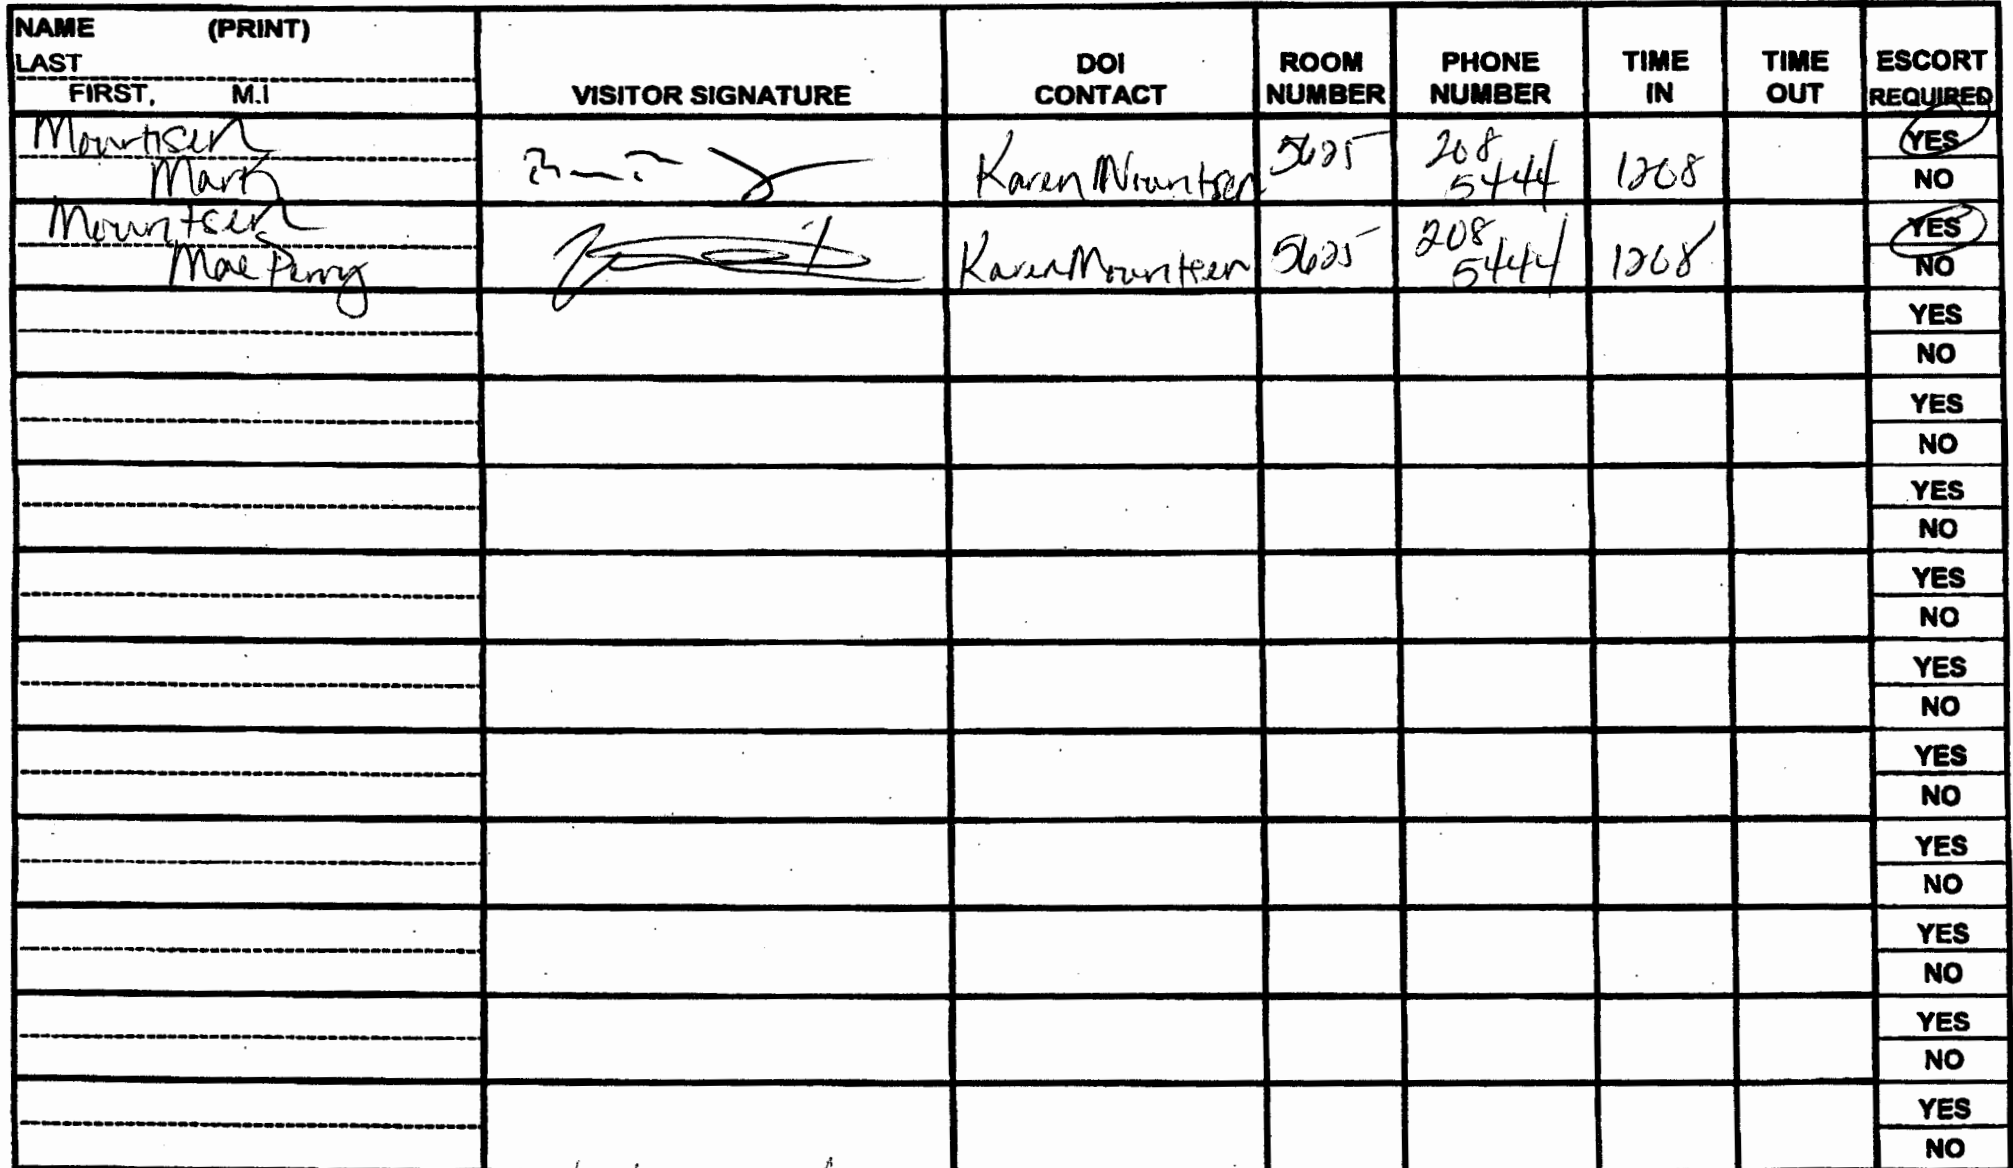 NAME (PRINT)
LAST
FIRST, M.I
VISITOR SIGNATURE
DOI
CONTACT
ROOM
NUMBER
PHONE
NUMBER
TIME
IN
TIME
OUT
ESCORT
REQUIRED
Mountsen
Mark
Karen Mountsen
5625
208
5444
1208
YES
NO
Mountsen
Mae Perry
Karen Mountsen
5625
208
5444
1208
YES
NO
YES
NO
YES
NO
YES
NO
YES
NO
YES
NO
YES
NO
YES
NO
YES
NO
YES
NO
YES
NO